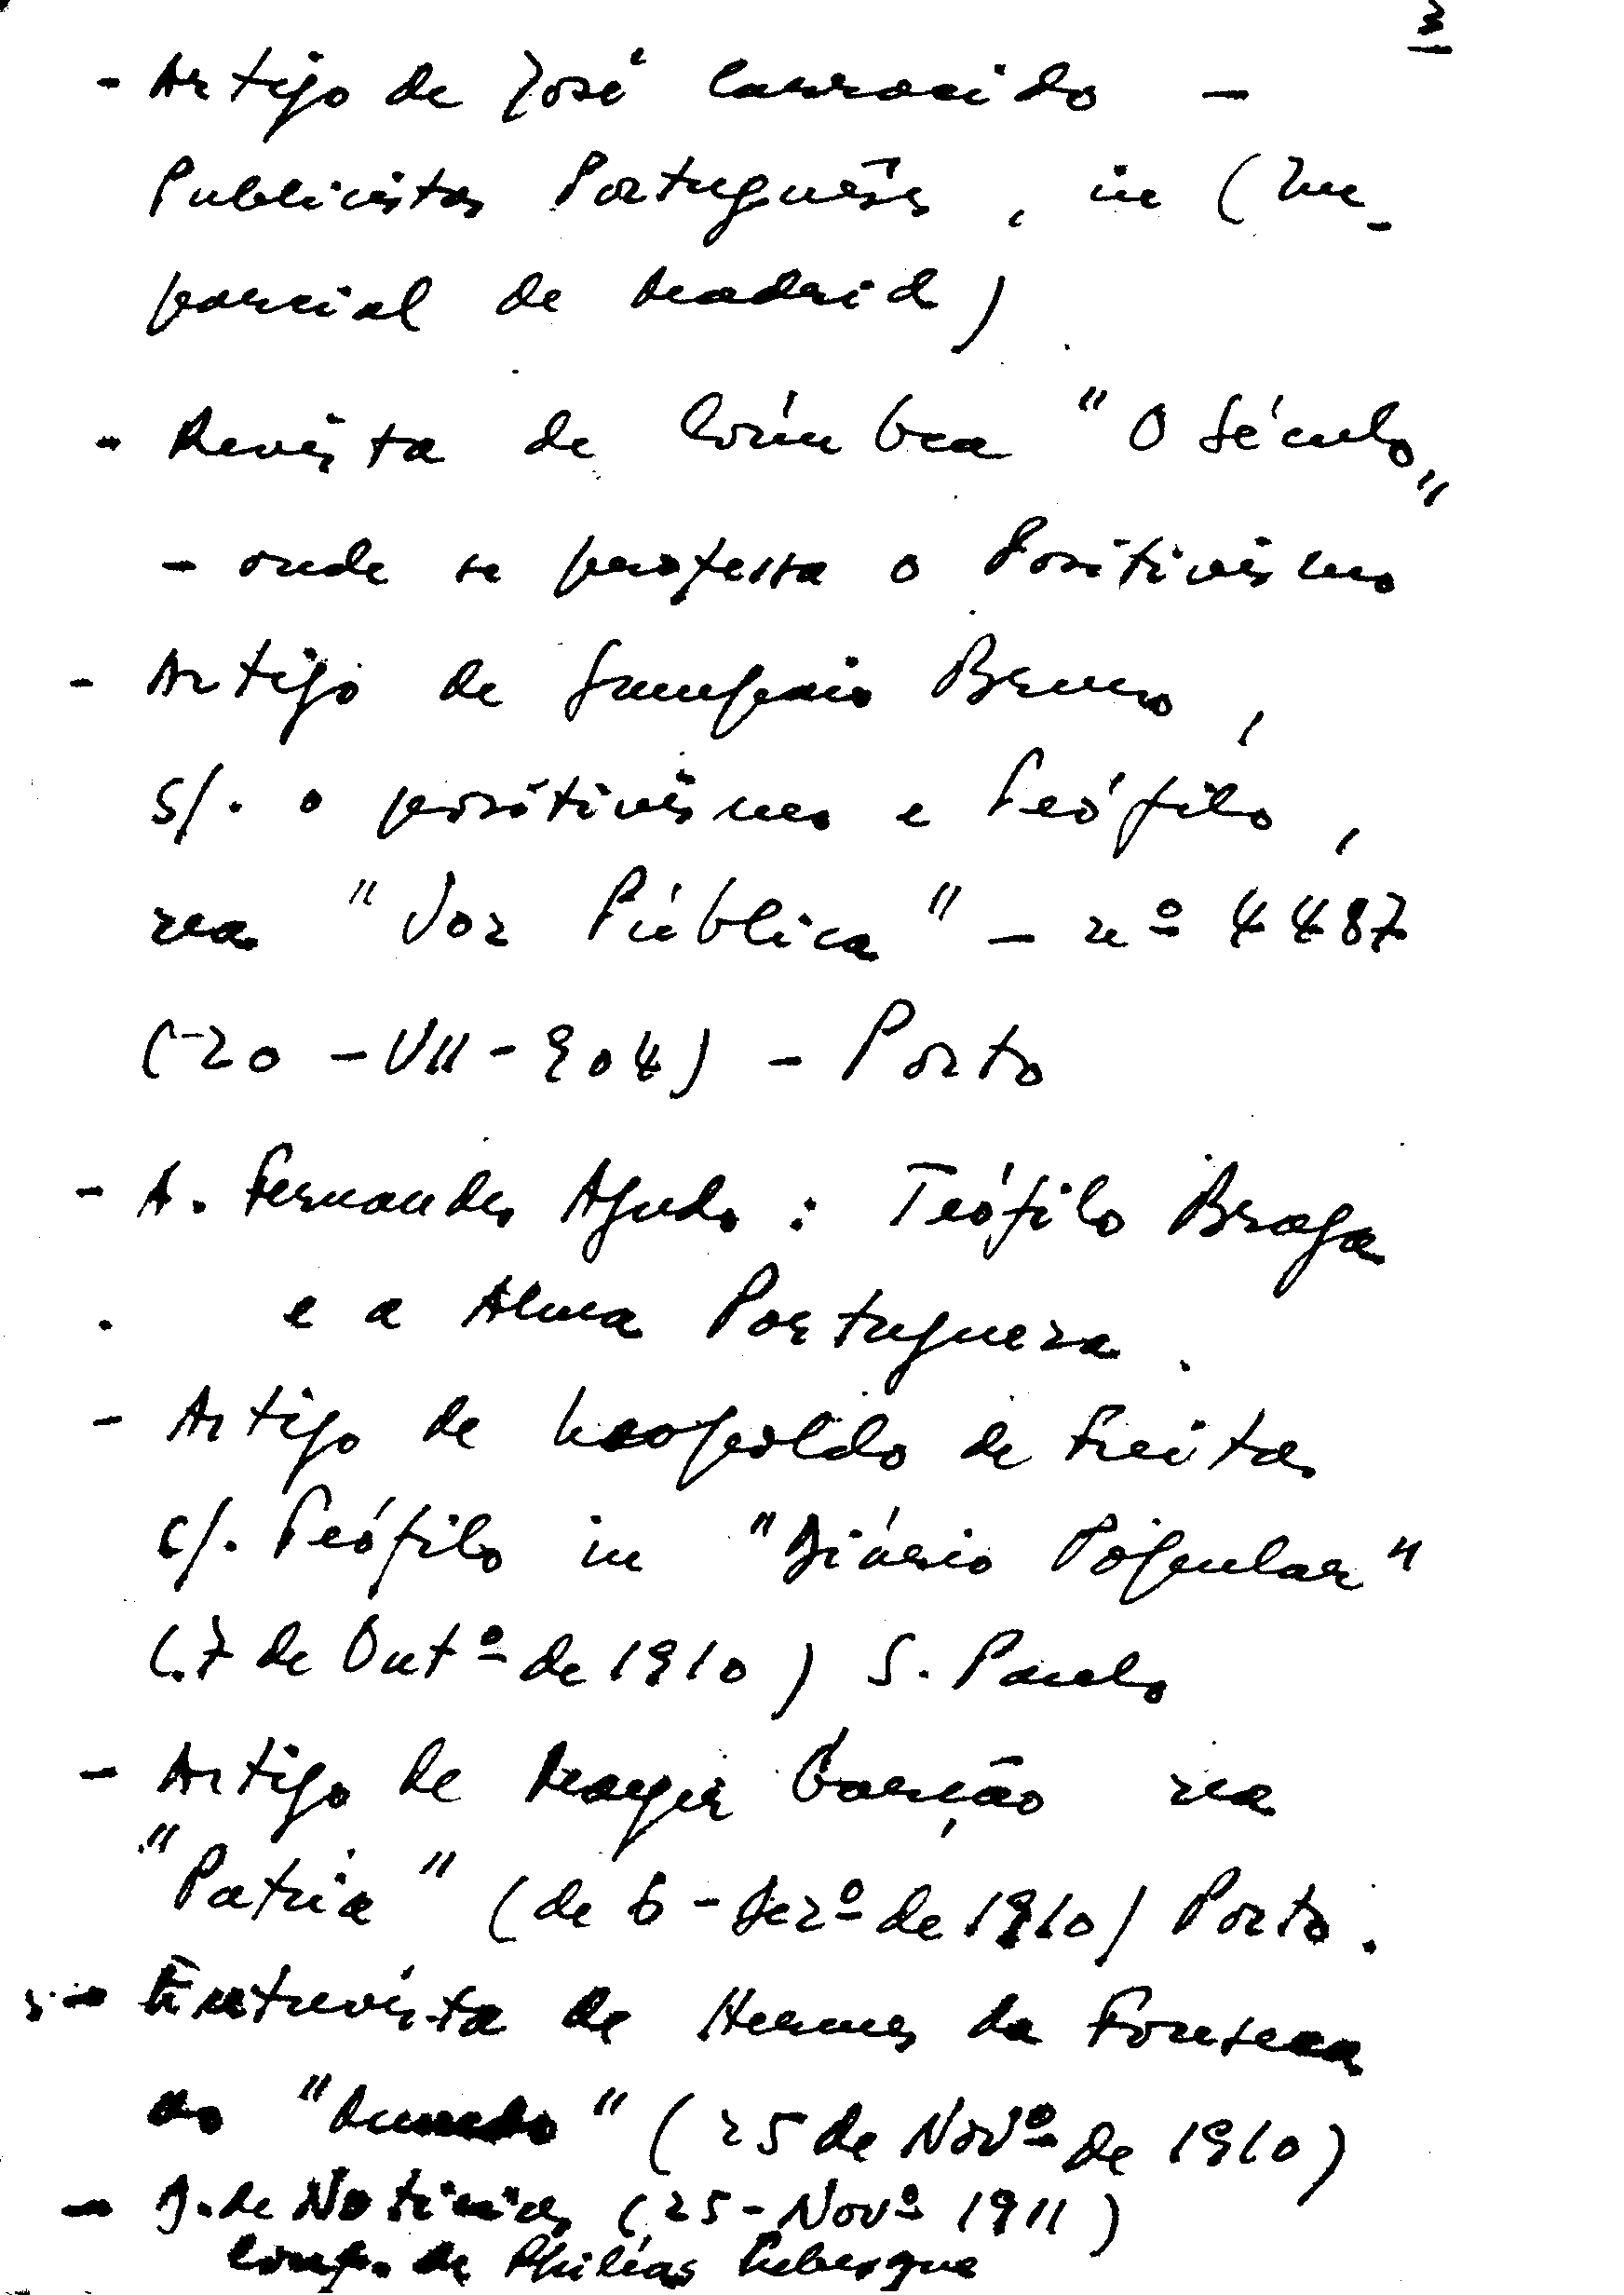 3
- Artigo de José Carracido -
Publicistas Portuguêses, in (Im-
parcial de Madrid)
- Revista de Coímbra "O Século"
- onde se professa o Positivismo
- Artigo de Sampaio Bruno,
S/. o positivismo e Teófilo,
na "Voz Pública" - nº 4487
(20 - VII - 904) - Porto
- A. Fernandes Agudo : Teófilo Braga
e a Alma Portuguesa.
- Artigo de Leopoldo de Freitas
s/. Teófilo in "Diário Popular"
(7 de Outº de 1910) S. Paulo
- Artigo de Mayer Garção na
"Patria" (de 6 - Dezº de 1910) Porto.
- Entrevista de Hermes da Fonseca
ao "Mundo" (25 de Novº de 1910)
- J. de Noticias (25 - Novº 1911)
de Philéas Lebesgue